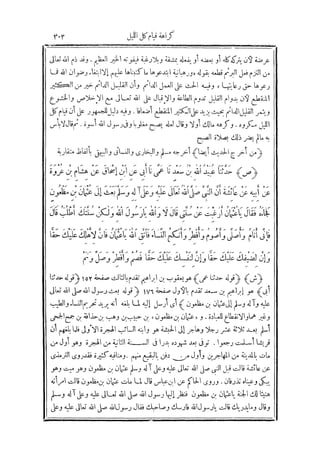 كراهة قيام كل الليل ٣٠٣
عرضة لأن يتركه كله أو بعضه أو يفعله بمشقة وبلا رغبة فيفوته الخير العظيم. وقد ذم الله تعالى
من التزم فعل البر ثم قطعه بقوله ورهبانية ابتدعوها ما كتبناها عليهم إلا ابتغاء رضوان الله فما
رعوها حق رعايتها، وفيه الحث على العمل الدائم وأن القليل الدائم خير من الكثير
المنقطع لأن بدوام القليل تدوم الطاعة والإقبال على الله تعالى مع الإخلاص والخشوع
ويثمر القليل الدائم بحيث يزيد على الكثير المنقطع أضعافا. وفيه دليل للجمهور على أن قيام كل
الليل مكروه. وكرهه مالك أولا وقال لعله يصبح مغلوبا وفى رسول الله أسوة. ثم قال لا بأس
به مالم يضر ذلك بصلاة الصبح
﴿من أخرج الحديث أيضا﴾ أخرجه مسلم والبخارى والنسائى والبيهقى بألفاظ متقاربة
﴿ص﴾ حَدَّثَنَا عُبَيْدُ اللهِ بْنُ سَعْدٍ نَا عَمِّى نَا أَبِى عَنِ ابْنِ إِسْحَاقَ عَنْ هِشَامِ بْنِ عُرْوَةَ
عَنْ أَبِيهِ عَنْ عَائِشَةَ أَنَّ النَّبِىَّ صَلَّى اللهُ تَعَالَى عَلَيْهِ وَعَلَى آلِهِ وَسَلَّمَ بَعَثَ إِلَى عُثْمَانَ بْنِ مَظْعُونٍ
فَجَاءَهُ فَقَالَ يَا عُثْمَانُ أَرَغِبْتَ عَنْ سُنَّتِى قَالَ لَا وَاللهِ يَا رَسُولَ اللهِ وَلَكِنْ سُنَّتَكَ أَطْلُبُ قَالَ
فَإِنِّى أَنَامُ وَأُصَلِّى وَأَصُومُ وَأُفْطِرُ وَأَنْكِحُ النِّسَاءَ فَاتَّقِ اللهَ يَا عُثْمَانُ فَإِنَّ لِأَهْلِكَ عَلَيْكَ حَقًّا
وَإِنَّ لِضَيْفِكَ عَلَيْكَ حَقًّا وَإِنَّ لِنَفْسِكَ عَلَيْكَ حَقًّا فَصُمْ وَأَفْطِرْ وَصَلِّ وَنَمْ
﴿ش﴾ ﴿قوله حدثنا عمى﴾ هو يعقوب بن إبراهيم تقدم بالثالث صفحة ١٥٢ ﴿قوله حدثنا
أبى﴾ هو إبراهيم بن سعد تقدم بالأول صفحة ١٦٦ ﴿قوله بعث رسول الله صلى الله تعالى
عليه وآله وسلم إلى عثمان بن مظعون﴾ أى أرسل إليه لما بلغه أنه يريد تحريم النساء والطيب
وغيرهما والانقطاع للعبادة. و﴿عثمان بن مظعون﴾ بن حبيب بن وهب بن حذافة بن جمح الجمحى
أسلم بعد ثلاثة عشر رجلا وهاجر إلى الحبشة هو وابنه السائب الهجرة الأولى فلما بلغهم أن
قريشا أسلمت رجعوا. توفى بعد شهوده بدرا فى السنة الثانية من الهجرة وهو أول من
مات بالمدينة من المهاجرين وأول من دفن بالبقيع منهم. ومناقبه كثيرة فقد روى الترمذى
عن عائشة قالت قبل النبى صلى الله تعالى عليه وعلى آله وسلم عثمان بن مظعون وهو ميت وهو
يبكى وعيناه تذرفان. وروى الحاكم عن ابن عباس قال لما مات عثمان بن مظعون قالت امرأته
هنيئا لك الجنة يا عثمان بن مظعون فنظر إليها رسول الله صلى الله تعالى عليه وعلى آله وسلم
وقال وما يدريك قالت يا رسول الله فارسك وصاحبك فقال رسول الله صلى الله تعالى عليه وعلى